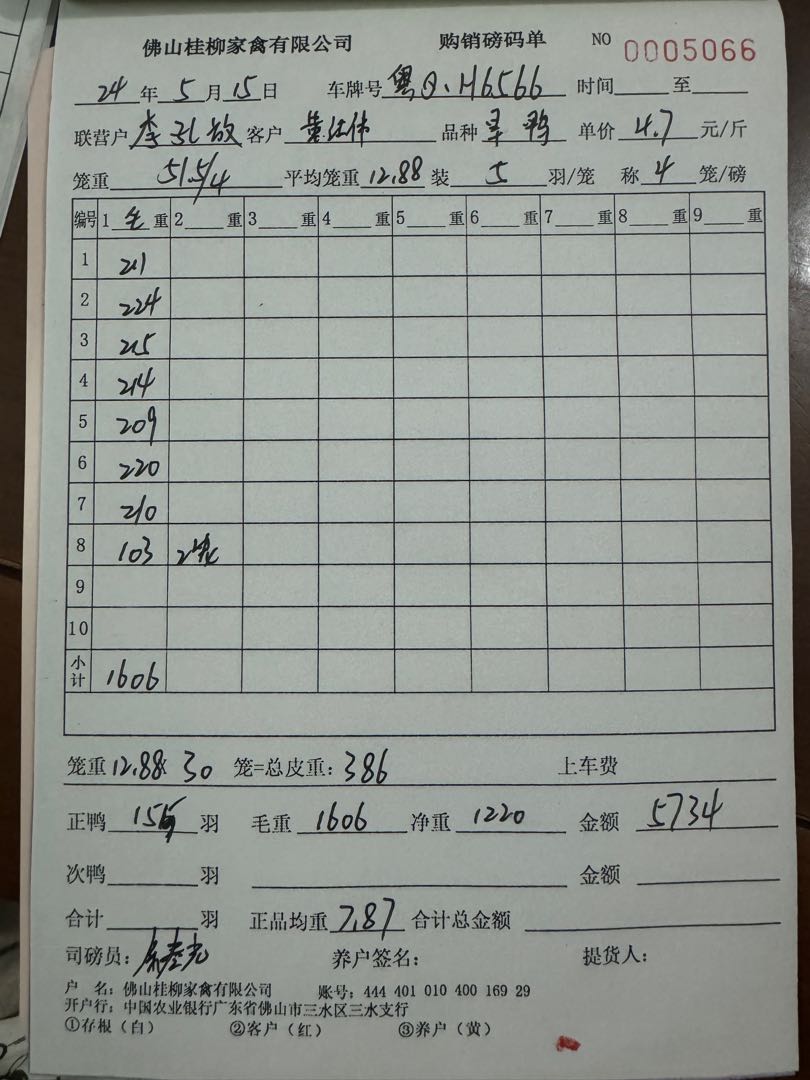 佛山桂柳家禽有限公司 购销磅码单 NO 0005066
24 年 5 月 15 日 车牌号 粤Q·H6566 时间 至
联营户 李孔敏 客户 黄仕伟 品种 单价 4.7 元/斤
笼重 51.5/4 平均笼重 12.88 装 5 羽/笼 称 4 笼/磅
编号 1 毛 重 2 重 3 重 4 重 5 重 6 重 7 重 8 重 9 重
1 211
2 224
3 215
4 214
5 209
6 220
7 210
8 103 2笼
9
10
小计 1606
笼重 12.88× 30 笼=总皮重: 386 上车费
正鸭 155 羽 毛重 1606 净重 1220 金额 5734
次鸭 羽 金额
合计 羽 正品均重 7.87 合计总金额
司磅员: 养户签名: 提货人:
户 名: 佛山桂柳家禽有限公司 账号: 444 401 010 400 169 29
开户行: 中国农业银行广东省佛山市三水区三水支行
①存根（白） ②客户（红） ③养户（黄）